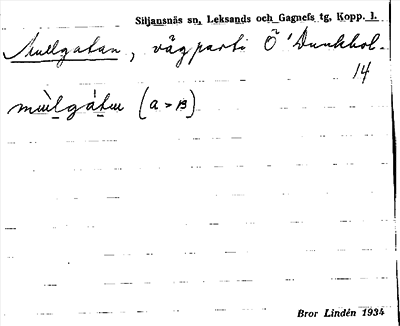 Siljansnäs sn, Leksands och Gagnefs tg, Kopp. l.
Mullgatan, vägparti Ö Dunkhol-
14
mùlgáten (a > B)
Bror Lindén 1934